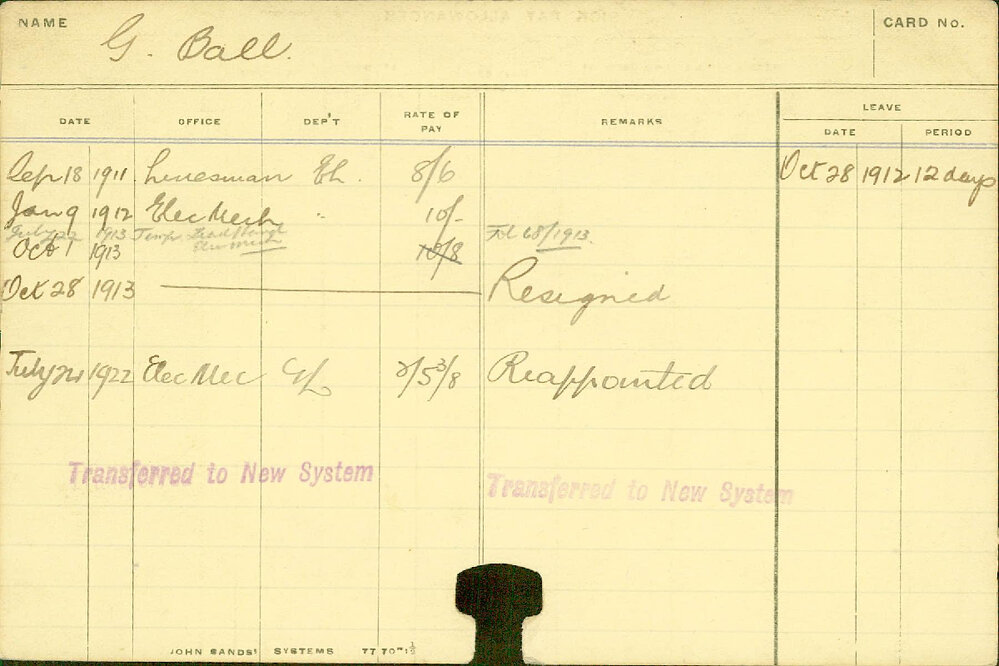 NAME G. Ball. CARD No.
DATE OFFICE DEP'T RATE OF PAY REMARKS LEAVE
DATE PERIOD
Sep 18 1911 Linesman Eh. 8/6 Oct 28 1912 12 days
Jan 9 1912 Elec Mech " 10/-
July 22 1913 Temp. Elec Mech 68/1913.
Oct 1 1913 10/8
Oct 28 1913 Resigned
July 24 1922 Elec Mec 2/5 3/8 Reappointed
Transferred to New System Transferred to New System
JOHN SANDS' SYSTEMS